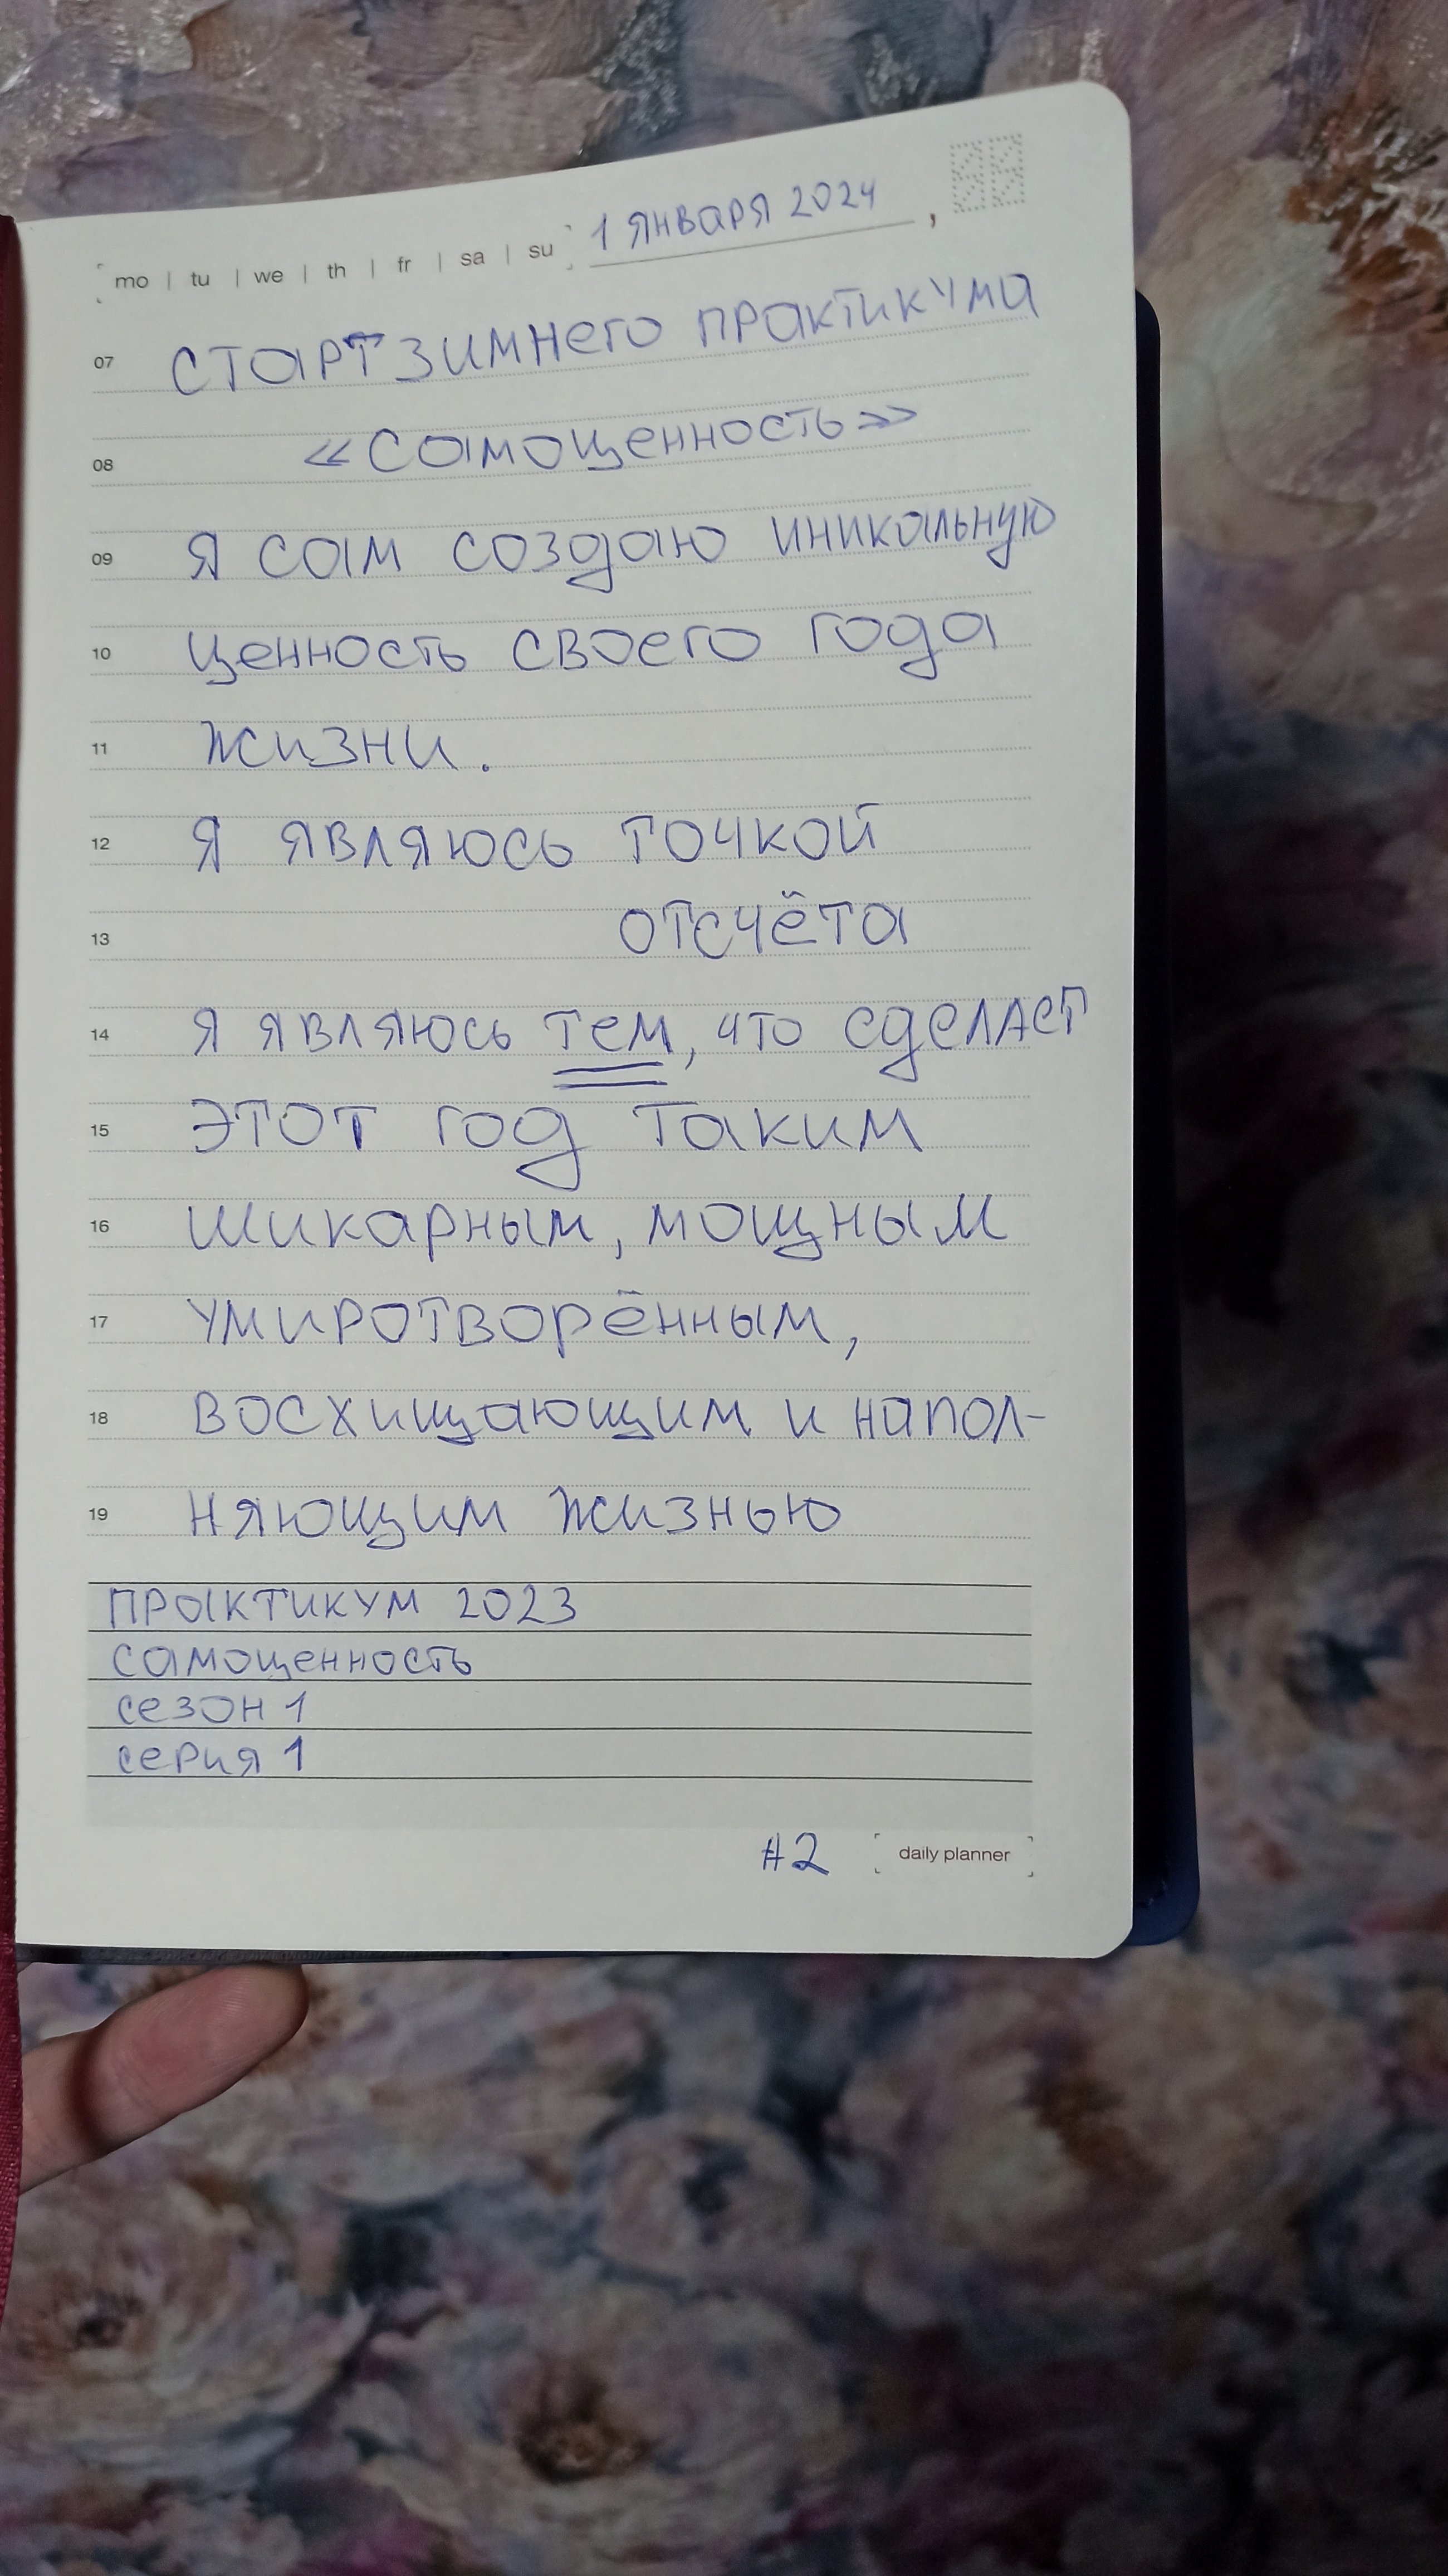 mo | tu | we | th | fr | sa | su 1 января 2024 ,
07 Старт зимнего практикума
08 «Самоценность»
09 Я сам создаю иникальную
10 ценность своего года
11 жизни.
12 Я являюсь точкой
13 отсчёта
14 Я являюсь тем, что сделает
15 этот год таким
16 шикарным, мощным
17 умиротворённым,
18 восхищающим и напол-
19 няющим жизнью
практикум 2023
самоценность
сезон 1
серия 1
#2 daily planner